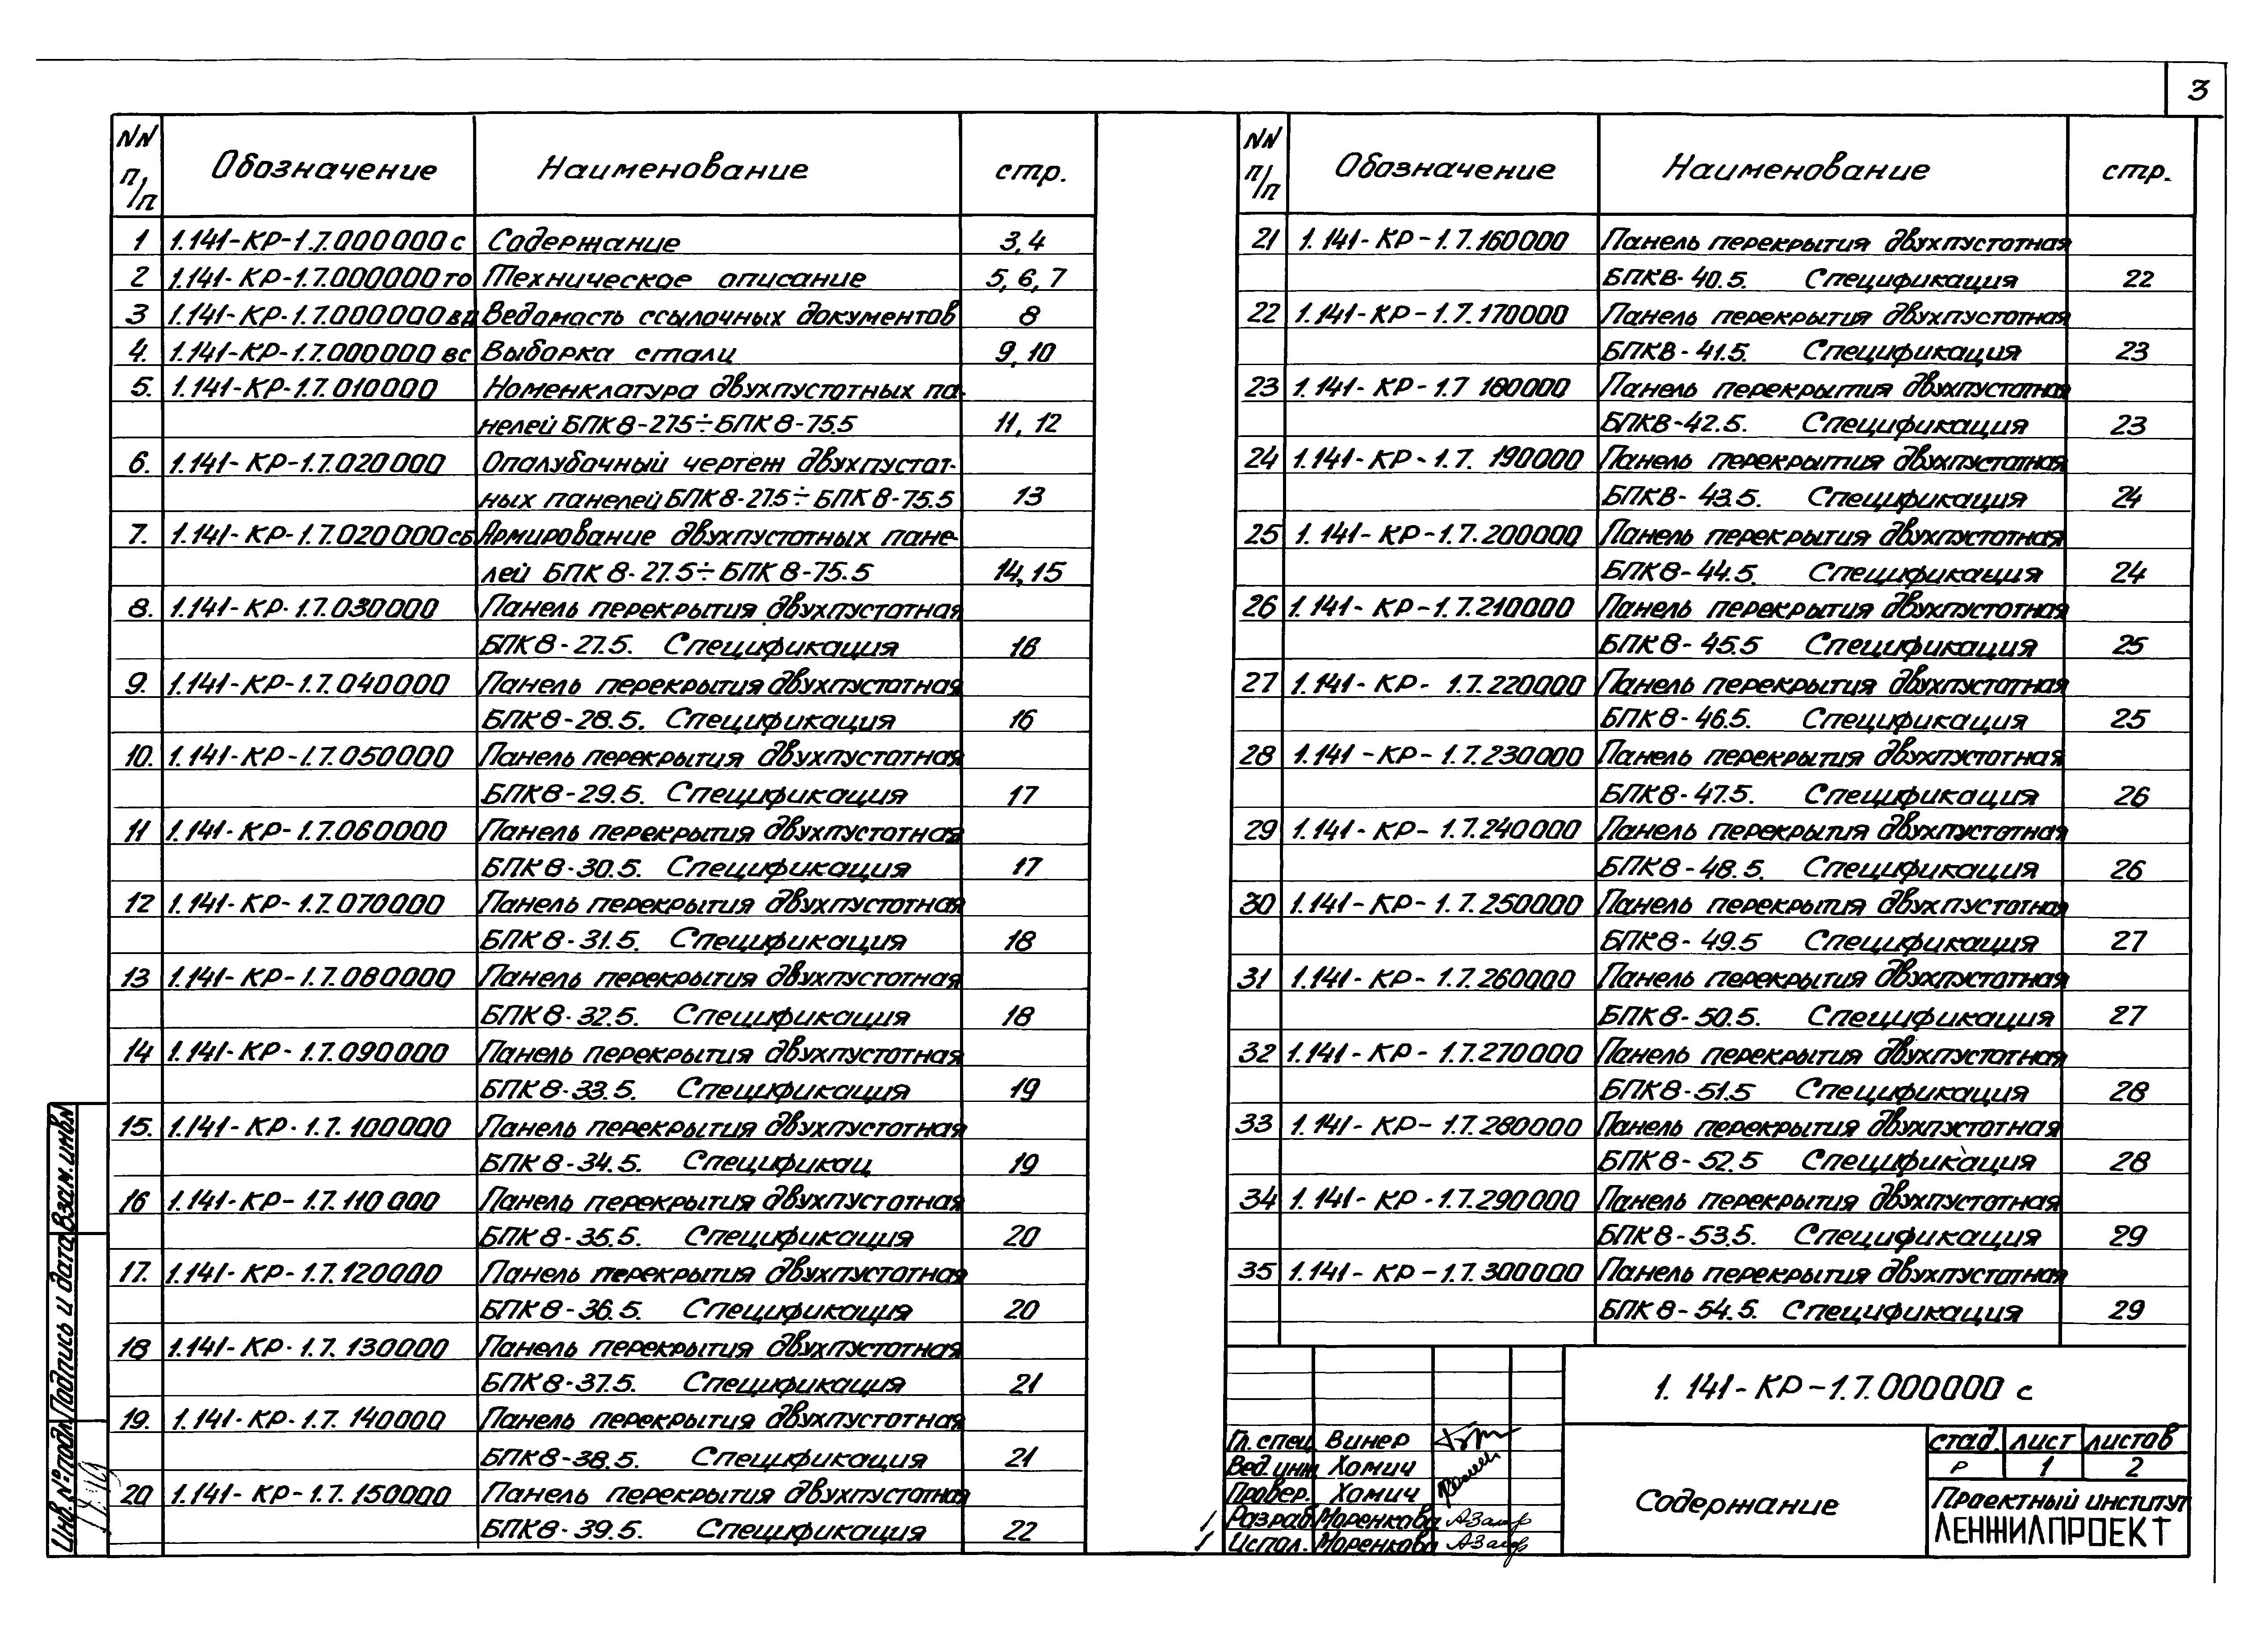 3
NN п/п Обозначение Наименование стр.
1 1.141-КР-1.7.000000 с Содержание 3,4
2 1.141-КР-1.7.000000 то Техническое описание 5, 6, 7
3 1.141-КР-1.7.000000 вд Ведомость ссылочных документов 8
4. 1.141-КР-1.7.000000 вс Выборка стали 9, 10
5. 1.141-КР-1.7.010000 Номенклатура двухпустотных па-
нелей БПК8-27.5÷БПК8-75.5 11, 12
6. 1.141-КР-1.7.020000 Опалубочный чертеж двухпустот-
ных панелей БПК8-27.5÷БПК8-75.5 13
7. 1.141-КР-1.7.020000сб Армирование двухпустотных пане-
лей БПК8-27.5÷БПК8-75.5 14, 15
8. 1.141-КР-1.7.030000 Панель перекрытия двухпустотная
БПК8-27.5. Спецификация 16
9. 1.141-КР-1.7.040000 Панель перекрытия двухпустотная
БПК8-28.5. Спецификация 16
10. 1.141-КР-1.7.050000 Панель перекрытия двухпустотная
БПК8-29.5. Спецификация 17
11 1.141-КР-1.7.060000 Панель перекрытия двухпустотная
БПК8-30.5. Спецификация 17
12 1.141-КР-1.7.070000 Панель перекрытия двухпустотная
БПК8-31.5. Спецификация 18
13 1.141-КР-1.7.080000 Панель перекрытия двухпустотная
БПК8-32.5. Спецификация 18
14 1.141-КР-1.7.090000 Панель перекрытия двухпустотная
БПК8-33.5. Спецификация 19
15. 1.141-КР-1.7.100000 Панель перекрытия двухпустотная
БПК8-34.5. Спецификац 19
16 1.141-КР-1.7.110000 Панель перекрытия двухпустотная
БПК8-35.5. Спецификация 20
17. 1.141-КР-1.7.120000 Панель перекрытия двухпустотная
БПК8-36.5. Спецификация 20
18 1.141-КР-1.7.130000 Панель перекрытия двухпустотная
БПК8-37.5. Спецификация 21
19. 1.141-КР-1.7.140000 Панель перекрытия двухпустотная
БПК8-38.5. Спецификация 21
20 1.141-КР-1.7.150000 Панель перекрытия двухпустотная
БПК8-39.5. Спецификация 22
NN п/п Обозначение Наименование стр.
21 1.141-КР-1.7.160000 Панель перекрытия двухпустотная
БПК8-40.5. Спецификация 22
22 1.141-КР-1.7.170000 Панель перекрытия двухпустотная
БПК8-41.5. Спецификация 23
23 1.141-КР-1.7 180000 Панель перекрытия двухпустотная
БПК8-42.5. Спецификация 23
24 1.141-КР-1.7.190000 Панель перекрытия двухпустотная
БПК8-43.5. Спецификация 24
25 1.141-КР-1.7.200000 Панель перекрытия двухпустотная
БПК8-44.5. Спецификация 24
26 1.141-КР-1.7.210000 Панель перекрытия двухпустотная
БПК8-45.5 Спецификация 25
27 1.141-КР-1.7.220000 Панель перекрытия двухпустотная
БПК8-46.5. Спецификация 25
28 1.141-КР-1.7.230000 Панель перекрытия двухпустотная
БПК8-47.5. Спецификация 26
29 1.141-КР-1.7.240000 Панель перекрытия двухпустотная
БПК8-48.5. Спецификация 26
30 1.141-КР-1.7.250000 Панель перекрытия двухпустотная
БПК8-49.5 Спецификация 27
31 1.141-КР-1.7.260000 Панель перекрытия двухпустотная
БПК8-50.5. Спецификация 27
32 1.141-КР-1.7.270000 Панель перекрытия двухпустотная
БПК8-51.5 Спецификация 28
33 1.141-КР-1.7.280000 Панель перекрытия двухпустотная
БПК8-52.5 Спецификация 28
34 1.141-КР-1.7.290000 Панель перекрытия двухпустотная
БПК8-53.5. Спецификация 29
35 1.141-КР-1.7.300000 Панель перекрытия двухпустотная
БПК8-54.5. Спецификация 29
1.141-КР-1.7.000000 с
Гл. спец. Винер
Вед. инж. Хомич
Провер. Хомич
Разраб. Моренкова
Испол. Моренкова
Содержание
стад. лист листов
Р 1 2
Проектный институт
ЛЕНЖИЛПРОЕКТ
Инв.№подл. Подпись и дата Взам.инв.N